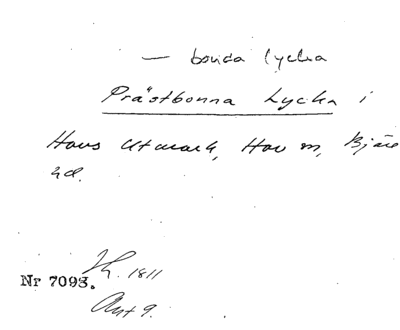 — bonda lycka
Prästbonna Lycka i
Hovs Utmark, Hov sn, Bjäre
hd.
Nr 7093. 1811
Akt 9.